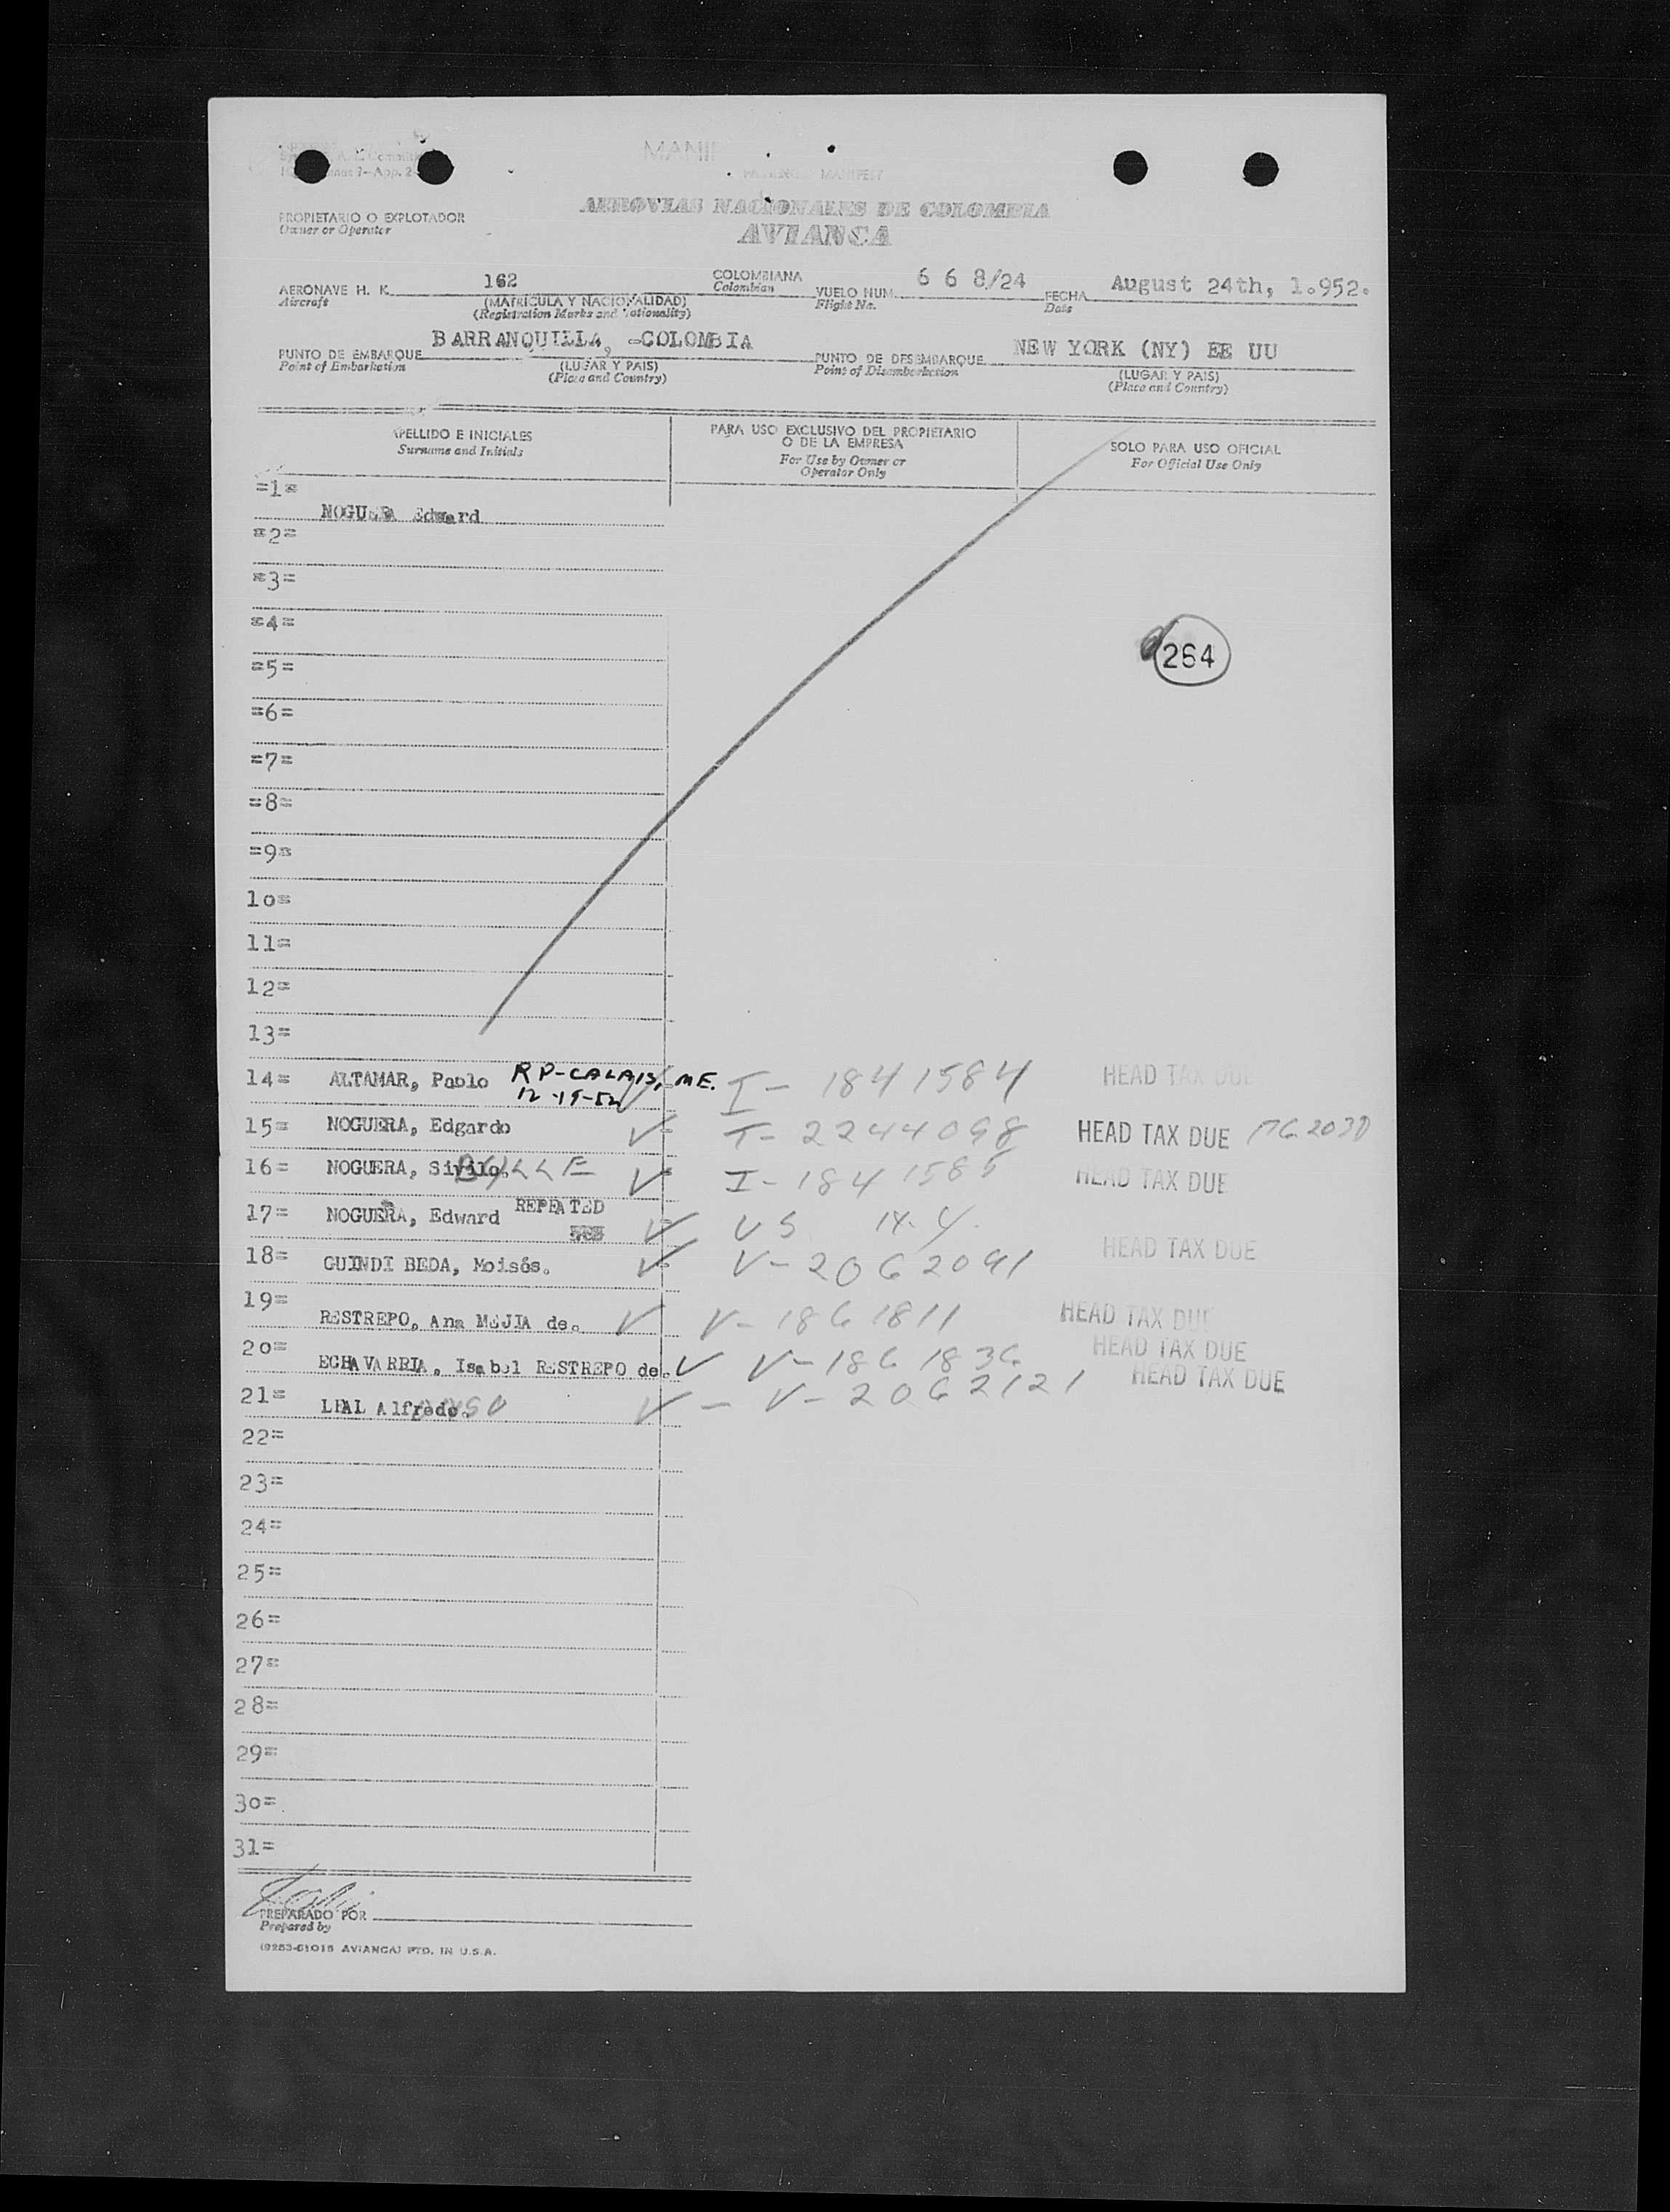 MANIF
PASSENGER MANIFEST
PROPIETARIO O EXPLOTADOR
Owner or Operator
AEROVIAS NACIONALES DE COLOMBIA
AVIANCA
AERONAVE H. K. 162 COLOMBIANA VUELO NUM. 6 6 8/24 FECHA August 24th, 1.952.
Aircraft (MATRICULA Y NACIONALIDAD) Colombian Flight No. Date
(Registration Marks and Nationality)
PUNTO DE EMBARQUE BARRANQUILLA, -COLOMBIA PUNTO DE DESEMBARQUE NEW YORK (NY) EE UU
Point of Embarkation (LUGAR Y PAIS) Point of Disembarkation (LUGAR Y PAIS)
(Place and Country) (Place and Country)
APELLIDO E INICIALES
Surname and Initials
PARA USO EXCLUSIVO DEL PROPIETARIO
O DE LA EMPRESA
For Use by Owner or
Operator Only
SOLO PARA USO OFICIAL
For Official Use Only
=1=
NOGUERA Edward
=2=
=3=
=4=
264
=5=
=6=
=7=
=8=
=9=
10=
11=
12=
13=
14= ALTAMAR, Pablo RP-CALAIS, ME. I - 1841584 HEAD TAX DUE
12-19-52
15= NOGUERA, Edgardo T- 2244098 HEAD TAX DUE
16= NOGUERA, I-1841585 HEAD TAX DUE
17= NOGUERA, Edward REPEATED US N.Y.
18= GUINDI BEDA, Moisés. V-2062091 HEAD TAX DUE
19= RESTREPO, Ana MEJIA de. V-1861811 HEAD TAX DUE
20= ECHAVARRIA, Isabel RESTREPO de. V-1861836 HEAD TAX DUE
21= LEAL Alfredo. - V-2062121 HEAD TAX DUE
22=
23=
24=
25=
26=
27=
28=
29=
30=
31=
PREPARADO POR
Prepared by
(9253-51015 AVIANCA) PTD. IN U.S.A.